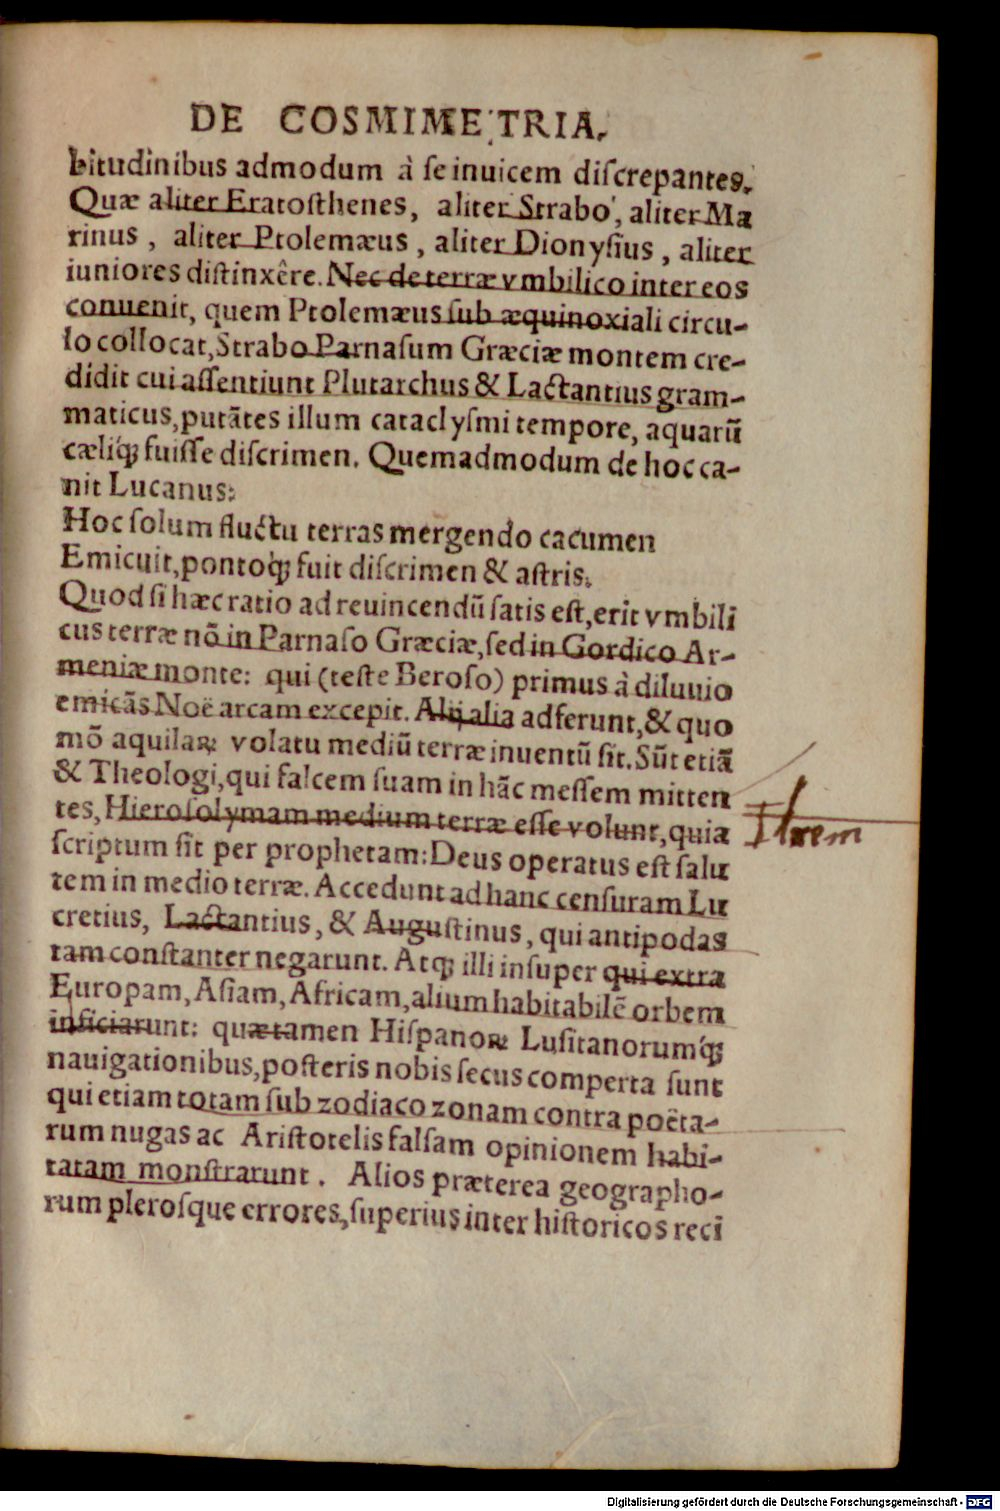 DE COSMIMETRIA.
bitudinibus admodum à se inuicem discrepantes.
Quæ aliter Eratosthenes, aliter Strabo, aliter Ma
rinus, aliter Ptolemæus, aliter Dionysius, aliter
iuniores distinxêre. Nec de terræ vmbilico inter eos
conuenit, quem Ptolemæus sub æquinoxiali circu-
lo collocat, Strabo Parnasum Græciæ montem cre-
didit cui assentiunt Plutarchus & Lactantius gram-
maticus, putātes illum cataclysmi tempore, aquarū
cæliq́; fuisse discrimen. Quemadmodum de hoc ca-
nit Lucanus:
Hoc solum fluctu terras mergendo cacumen
Emicuit, pontoq́; fuit discrimen & astris.
Quod si hæc ratio ad reuincendū satis est, erit vmbili
cus terræ nō in Parnaso Græciæ, sed in Gordico Ar-
meniæ monte: qui (teste Beroso) primus à diluuio
emicās Noë arcam excepit. Alij alia adferunt, & quo
mō aquilaꝝ volatu mediū terræ inuentū sit. Sūt etiā
& Theologi, qui falcem suam in hāc messem mitten
tes, Hierosolymam medium terræ esse volunt, quia
scriptum sit per prophetam: Deus operatus est salu
tem in medio terræ. Accedunt ad hanc censuram Lu
cretius, Lactantius, & Augustinus, qui antipodas
tam constanter negarunt. Atq; illi insuper qui extra
Europam, Asiam, Africam, alium habitabilē orbem
inficiarunt: quæ tamen Hispanoꝝ Lusitanorumq́;
nauigationibus, posteris nobis secus comperta sunt
qui etiam totam sub zodiaco zonam contra poëta-
rum nugas ac Aristotelis falsam opinionem habi-
tatam monstrarunt. Alios præterea geographo-
rum plerosque errores, superius inter historicos reci
Digitalisierung gefördert durch die Deutsche Forschungsgemeinschaft - DFG